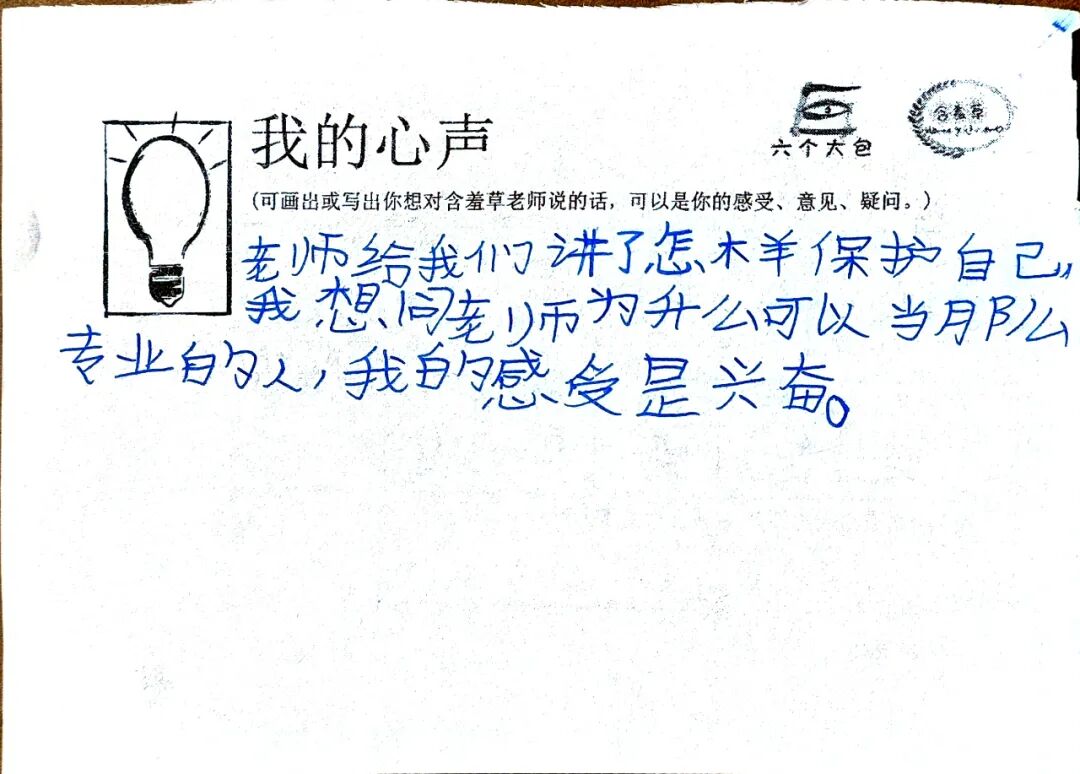 我的心声
六个大包
含羞草
(可画出或写出你想对含羞草老师说的话，可以是你的感受、意见、疑问。)
老师给我们讲了怎木羊保护自己，
我想问老师为升么可以当月那么
专业的人，我的感受是兴奋。